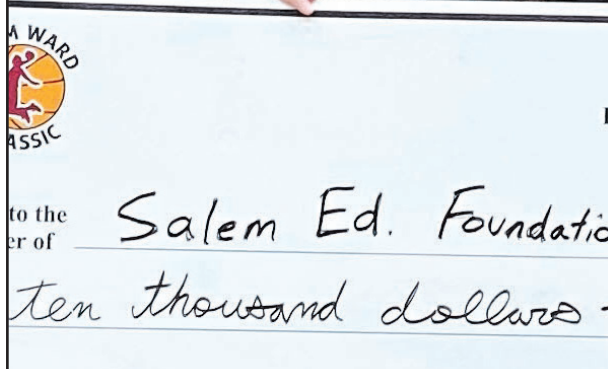 M WARD
ASSIC
to the
er of
Salem Ed. Foundatio
ten thousand dollars -